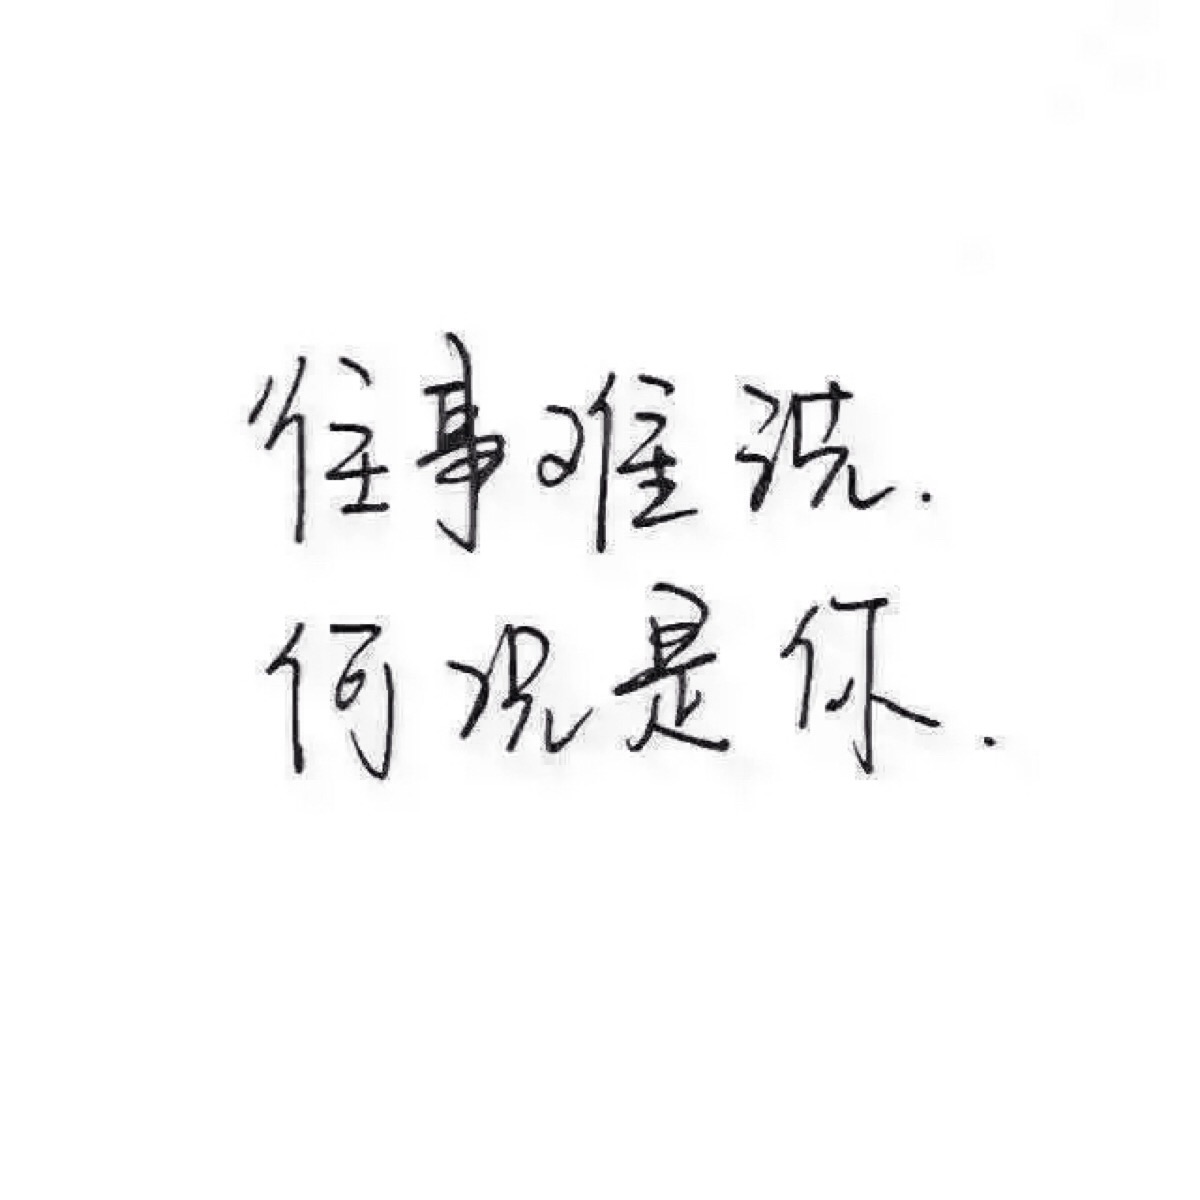 往事难洗.
何况是你.